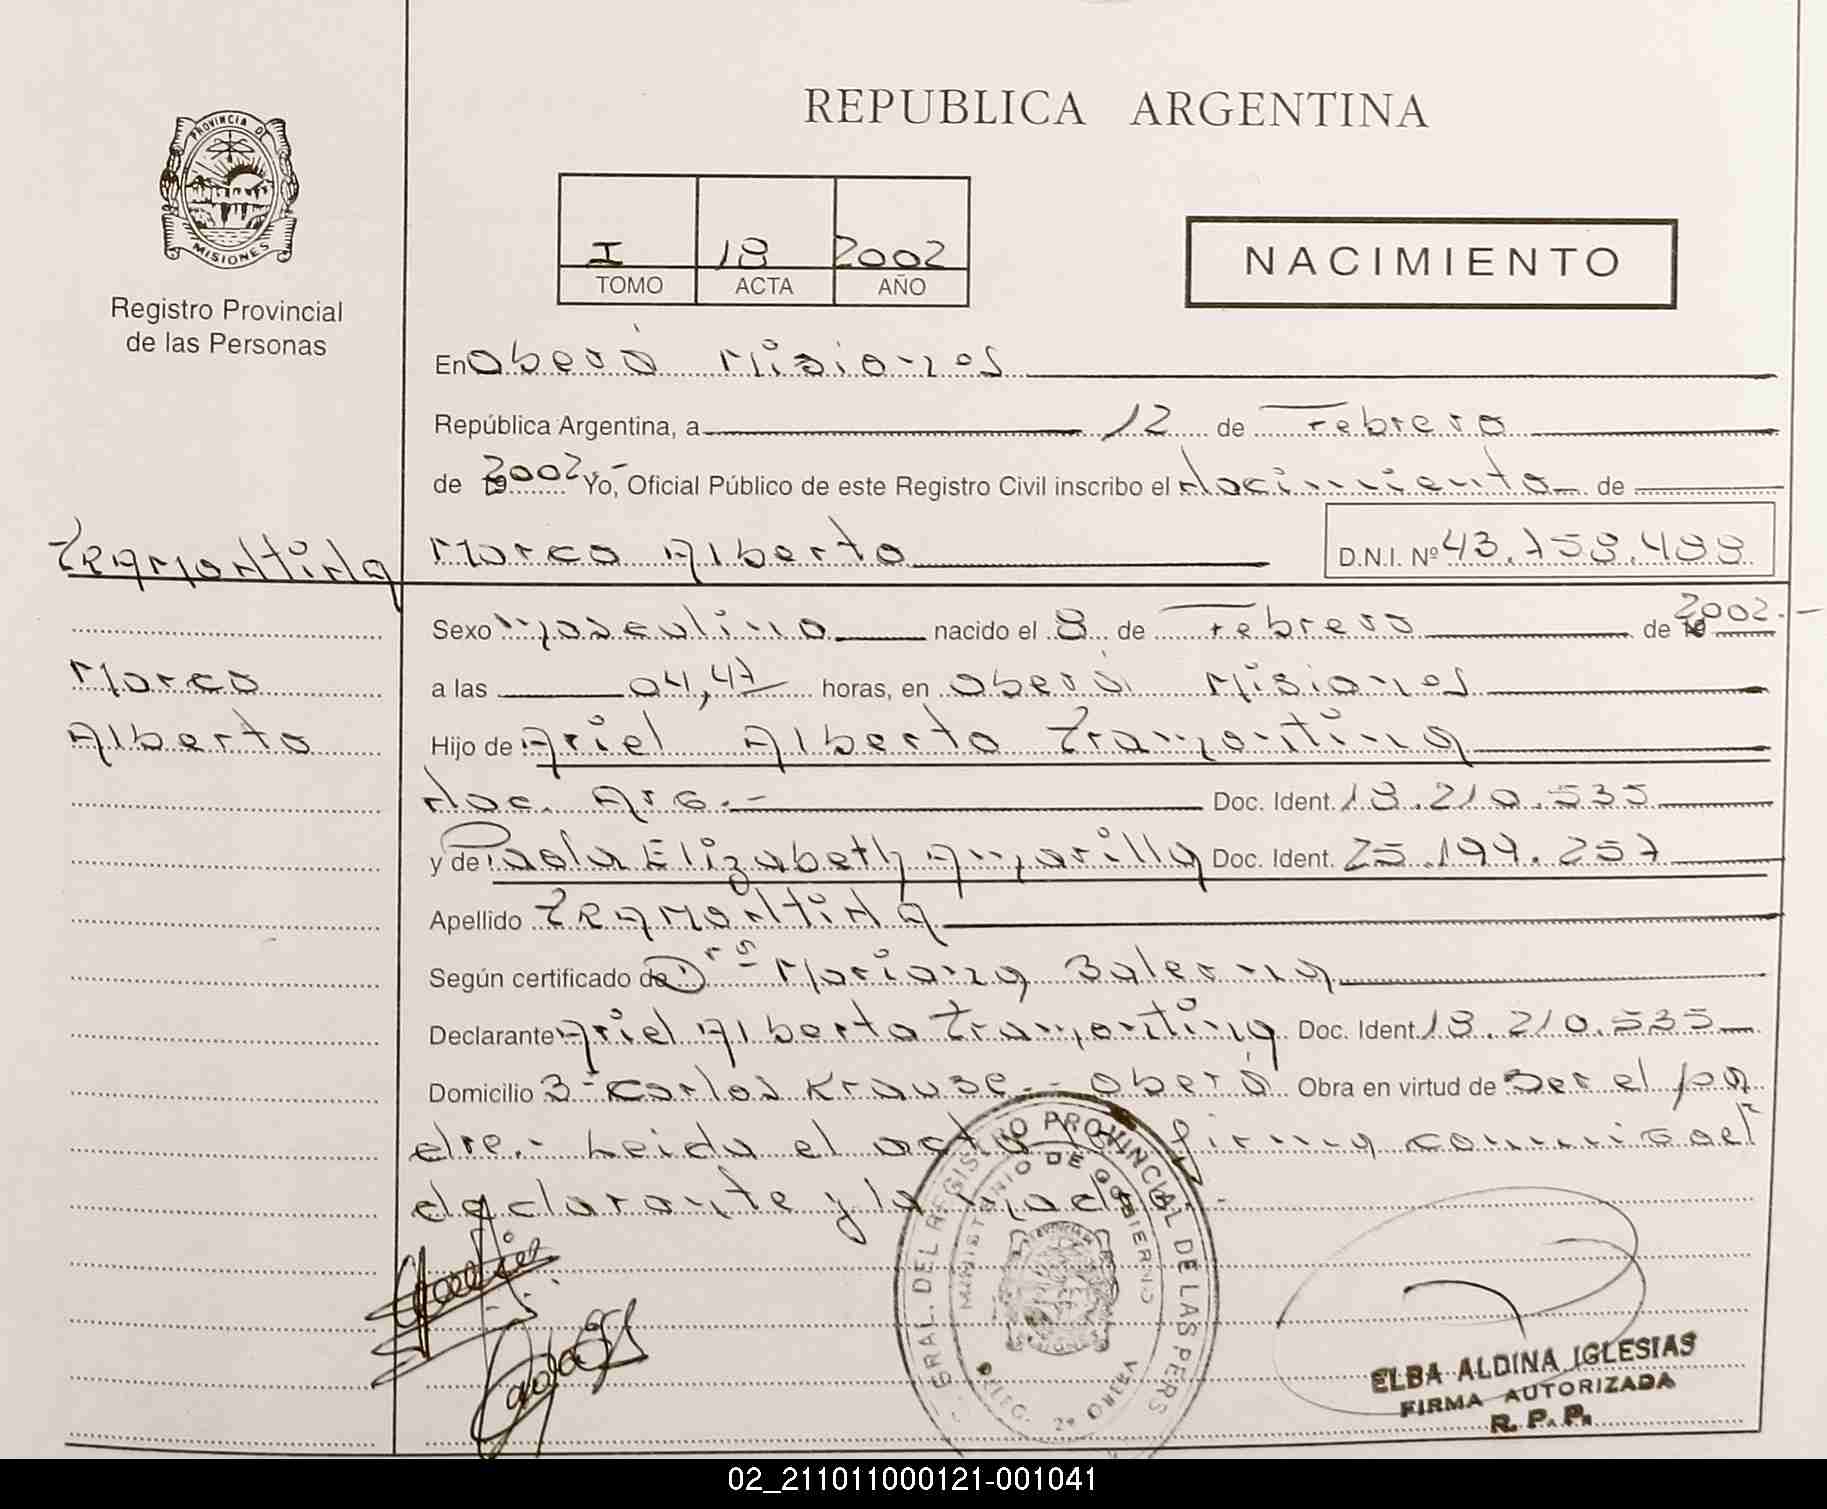 PROVINCIA DE
MISIONES
Registro Provincial
de las Personas
REPUBLICA ARGENTINA
I 18 2002
TOMO ACTA AÑO
NACIMIENTO
En Oberá Misiones
República Argentina, a 12 de Febrero
de 2002 Yo, Oficial Público de este Registro Civil inscribo el Nacimiento de
Tramontina
Marco Alberto
Marco Alberto D.N.I. Nº 43.758.488
Sexo Masculino nacido el 8 de Febrero de 2002.-
a las 04,47 horas, en Oberá Misiones
Hijo de Ariel Alberto Tramontina
Nac. Arg.- Doc. Ident. 18.210.535
y de Paola Elizabeth Amarilla Doc. Ident. 25.199.257
Apellido Tramontina
Según certificado de Mariana
Declarante Ariel Alberto Tramontina Doc. Ident. 18.210.535
Domicilio Carlos Krause.- Oberá Obra en virtud de ser el pa
dre.- Leida el acta la firma conmigo el
declarante y la madre.-
GRAL. DEL REGISTRO PROVINCIAL DE LAS PERS
MINISTERIO DE GOBIERNO
DELEG. 2ª OBERA
ELBA ALDINA IGLESIAS
FIRMA AUTORIZADA
R. P. P.
02_211011000121-001041